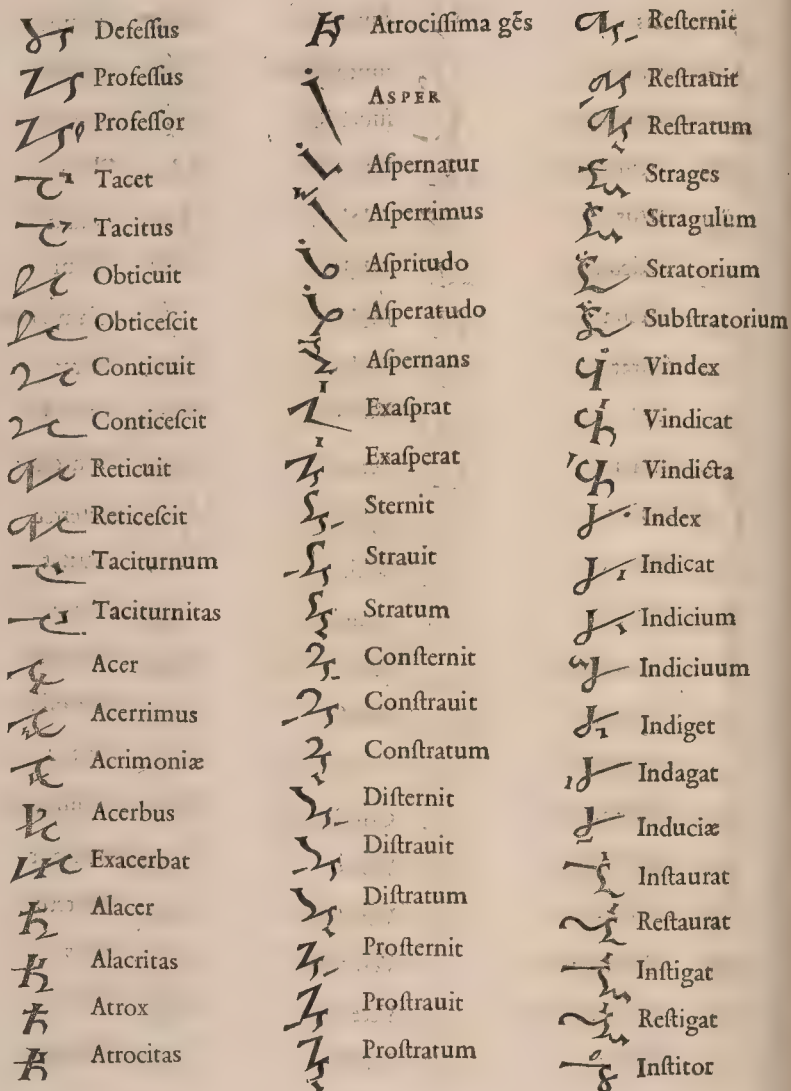 Defeſſus
Profeſſus
Profeſſor
Tacet
Tacitus
Obticuit
Obticeſcit
Conticuit
Conticeſcit
Reticuit
Reticeſcit
Taciturnum
Taciturnitas
Acer
Acerrimus
Acrimoniæ
Acerbus
Exacerbat
Alacer
Alacritas
Atrox
Atrocitas
Atrociſſima gēs
ASPER
Aſpernatur
Aſperrimus
Aſpritudo
Aſperatudo
Aſpernans
Exaſprat
Exaſperat
Sternit
Strauit
Stratum
Conſternit
Conſtrauit
Conſtratum
Diſternit
Diſtrauit
Diſtratum
Proſternit
Proſtrauit
Proſtratum
Reſternit
Reſtrauit
Reſtratum
Strages
Stragulum
Stratorium
Subſtratorium
Vindex
Vindicat
Vindicta
Index
Indicat
Indicium
Indiciuum
Indiget
Indagat
Induciæ
Inſtaurat
Reſtaurat
Inſtigat
Reſtigat
Inſtitor